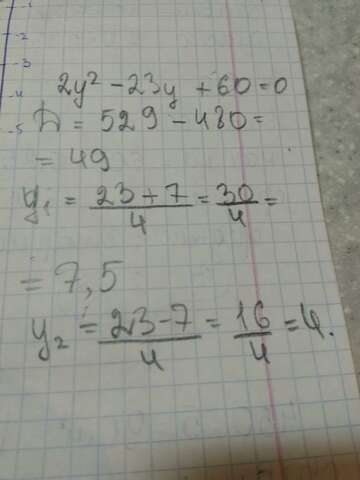 -1
-2
-3
-4
-5
2y² - 23y + 60 = 0
D = 529 - 480 =
= 49
y₁ = (23 + 7)/4 = 30/4 =
= 7,5
y₂ = (23 - 7)/4 = 16/4 = 4.